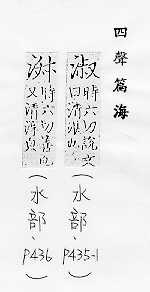 四聲篇海
淑 時六切說文曰清湛也 (水部、P435-1)
時六切善也又清 (水部、P436)